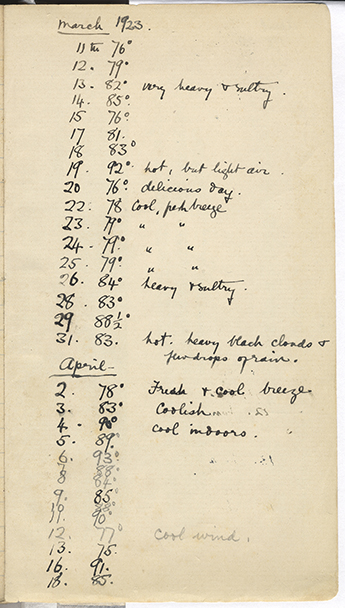 March 1923.
11th 76°
12. 79°
13. 82° very heavy & sultry.
14. 85°.
15 76°
17 81.
18 83°
19. 92° hot, but light air.
20 76° delicious day.
22. 78 Cool, fresh breeze
23. 79° " "
24. 79° " "
25. 79° " "
26. 84° heavy & sultry.
28. 83°
29 88½°
31. 83. hot. heavy black clouds &
few drops of rain.
April
2. 78° Fresh & cool breeze
3. 83° Coolish
4. 90° cool indoors.
5. 89°
6. 93°
7 88°
8 84°
9. 85°
88°
11. 90°
12. 77° cool wind.
13. 75.
16. 91.
18. 85.